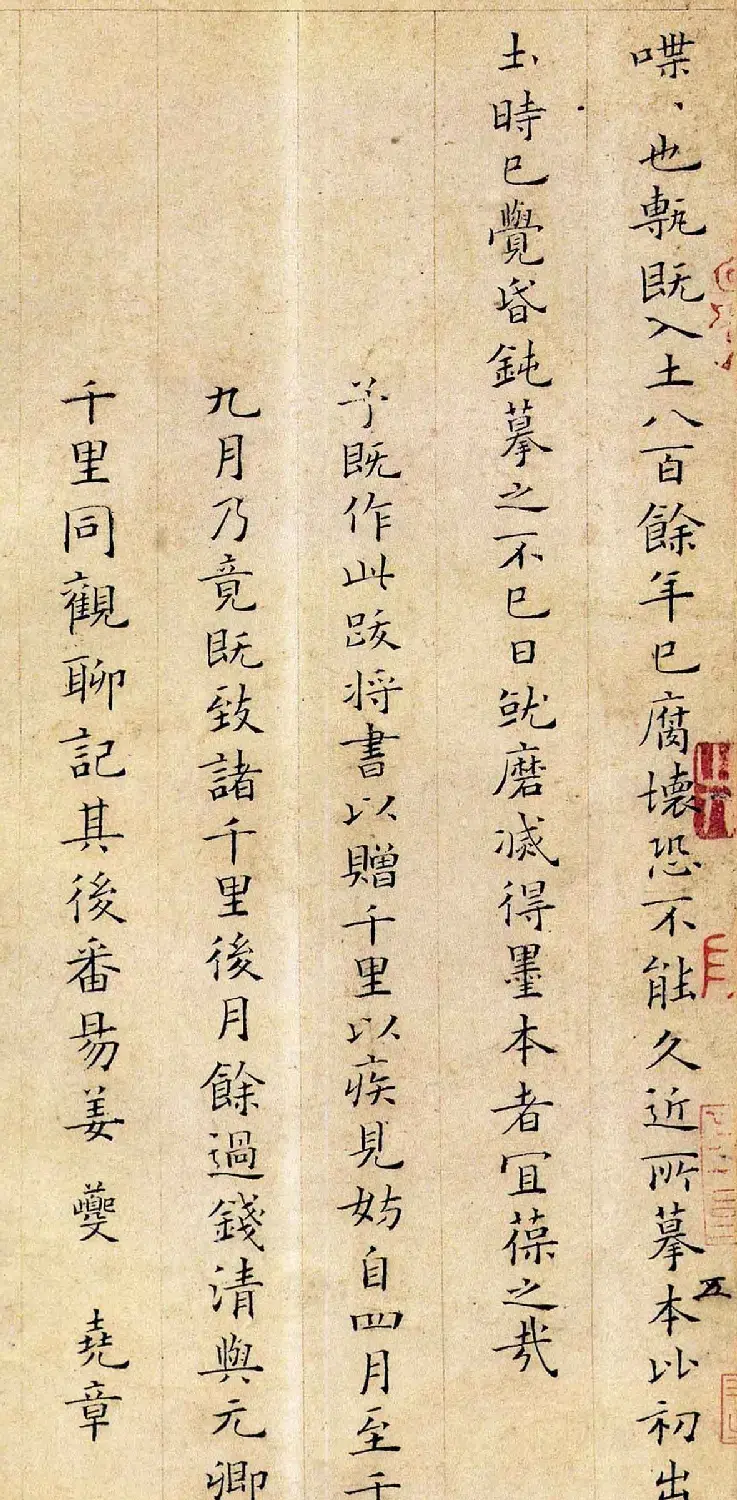 喋、也甎既入土八百餘年巳腐壞恐不能久近所摹本比初出
土時巳覺昏鈍摹之不巳日就磨滅得墨本者宜葆之哉
予既作此跋將書以贈千里以疾見妨自四月至于
九月乃竟既致諸千里後月餘過錢清與元卿
千里同觀聊記其後番昜姜夔 堯章
五